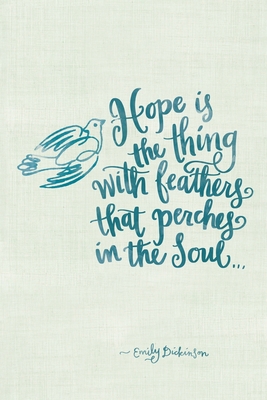 Hope is
the thing
with feathers
that perches
in the Soul...
~ Emily Dickinson